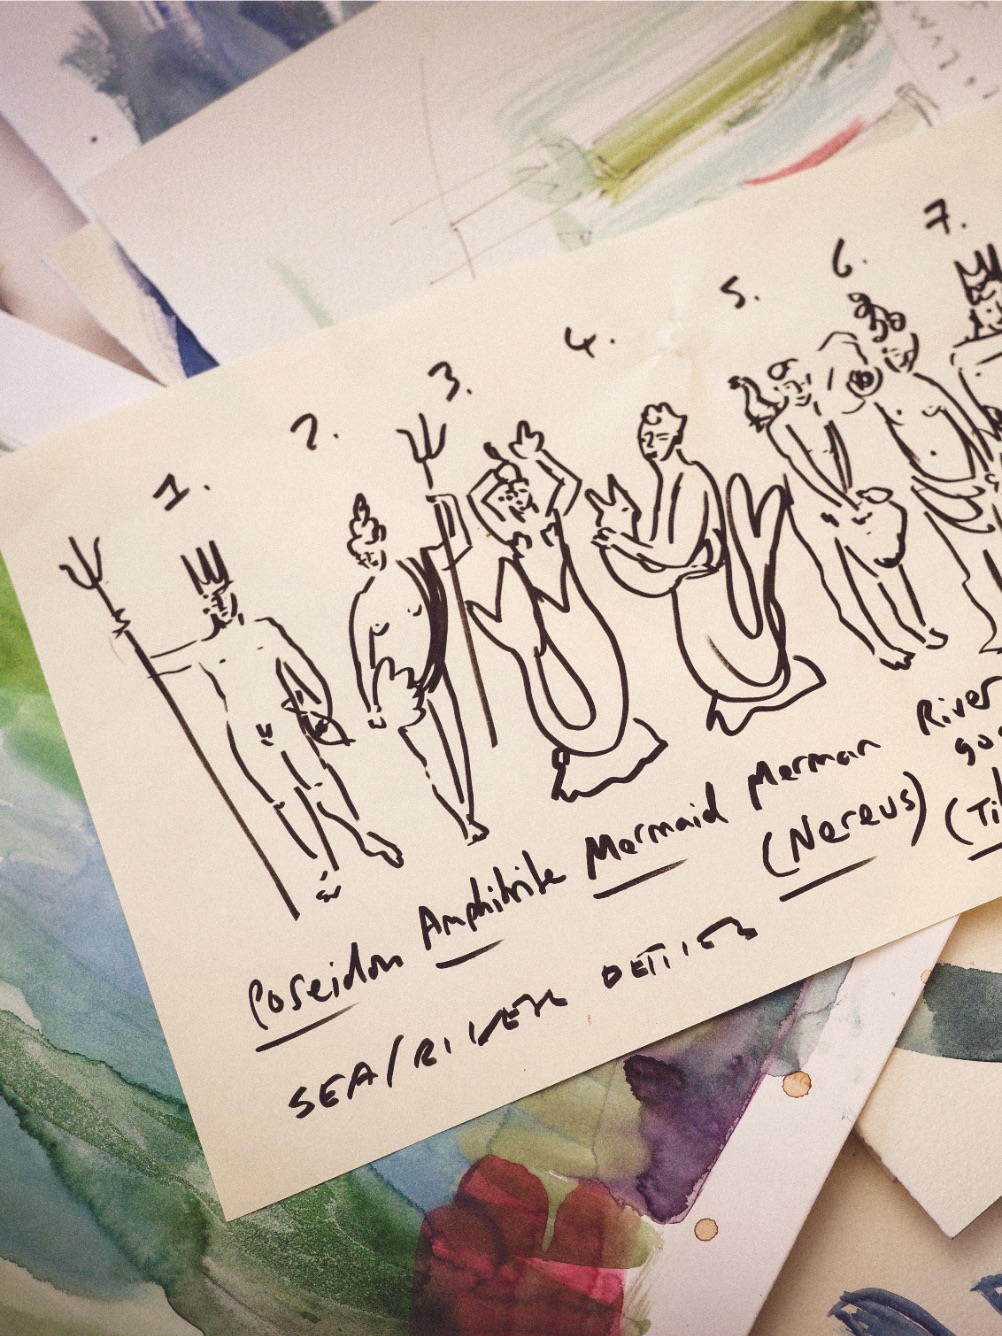 1. 2. 3. 4. 5. 6. 7.
Poseidon Amphitrite Mermaid Merman River
(Nereus)
SEA/RIVER DEITIES